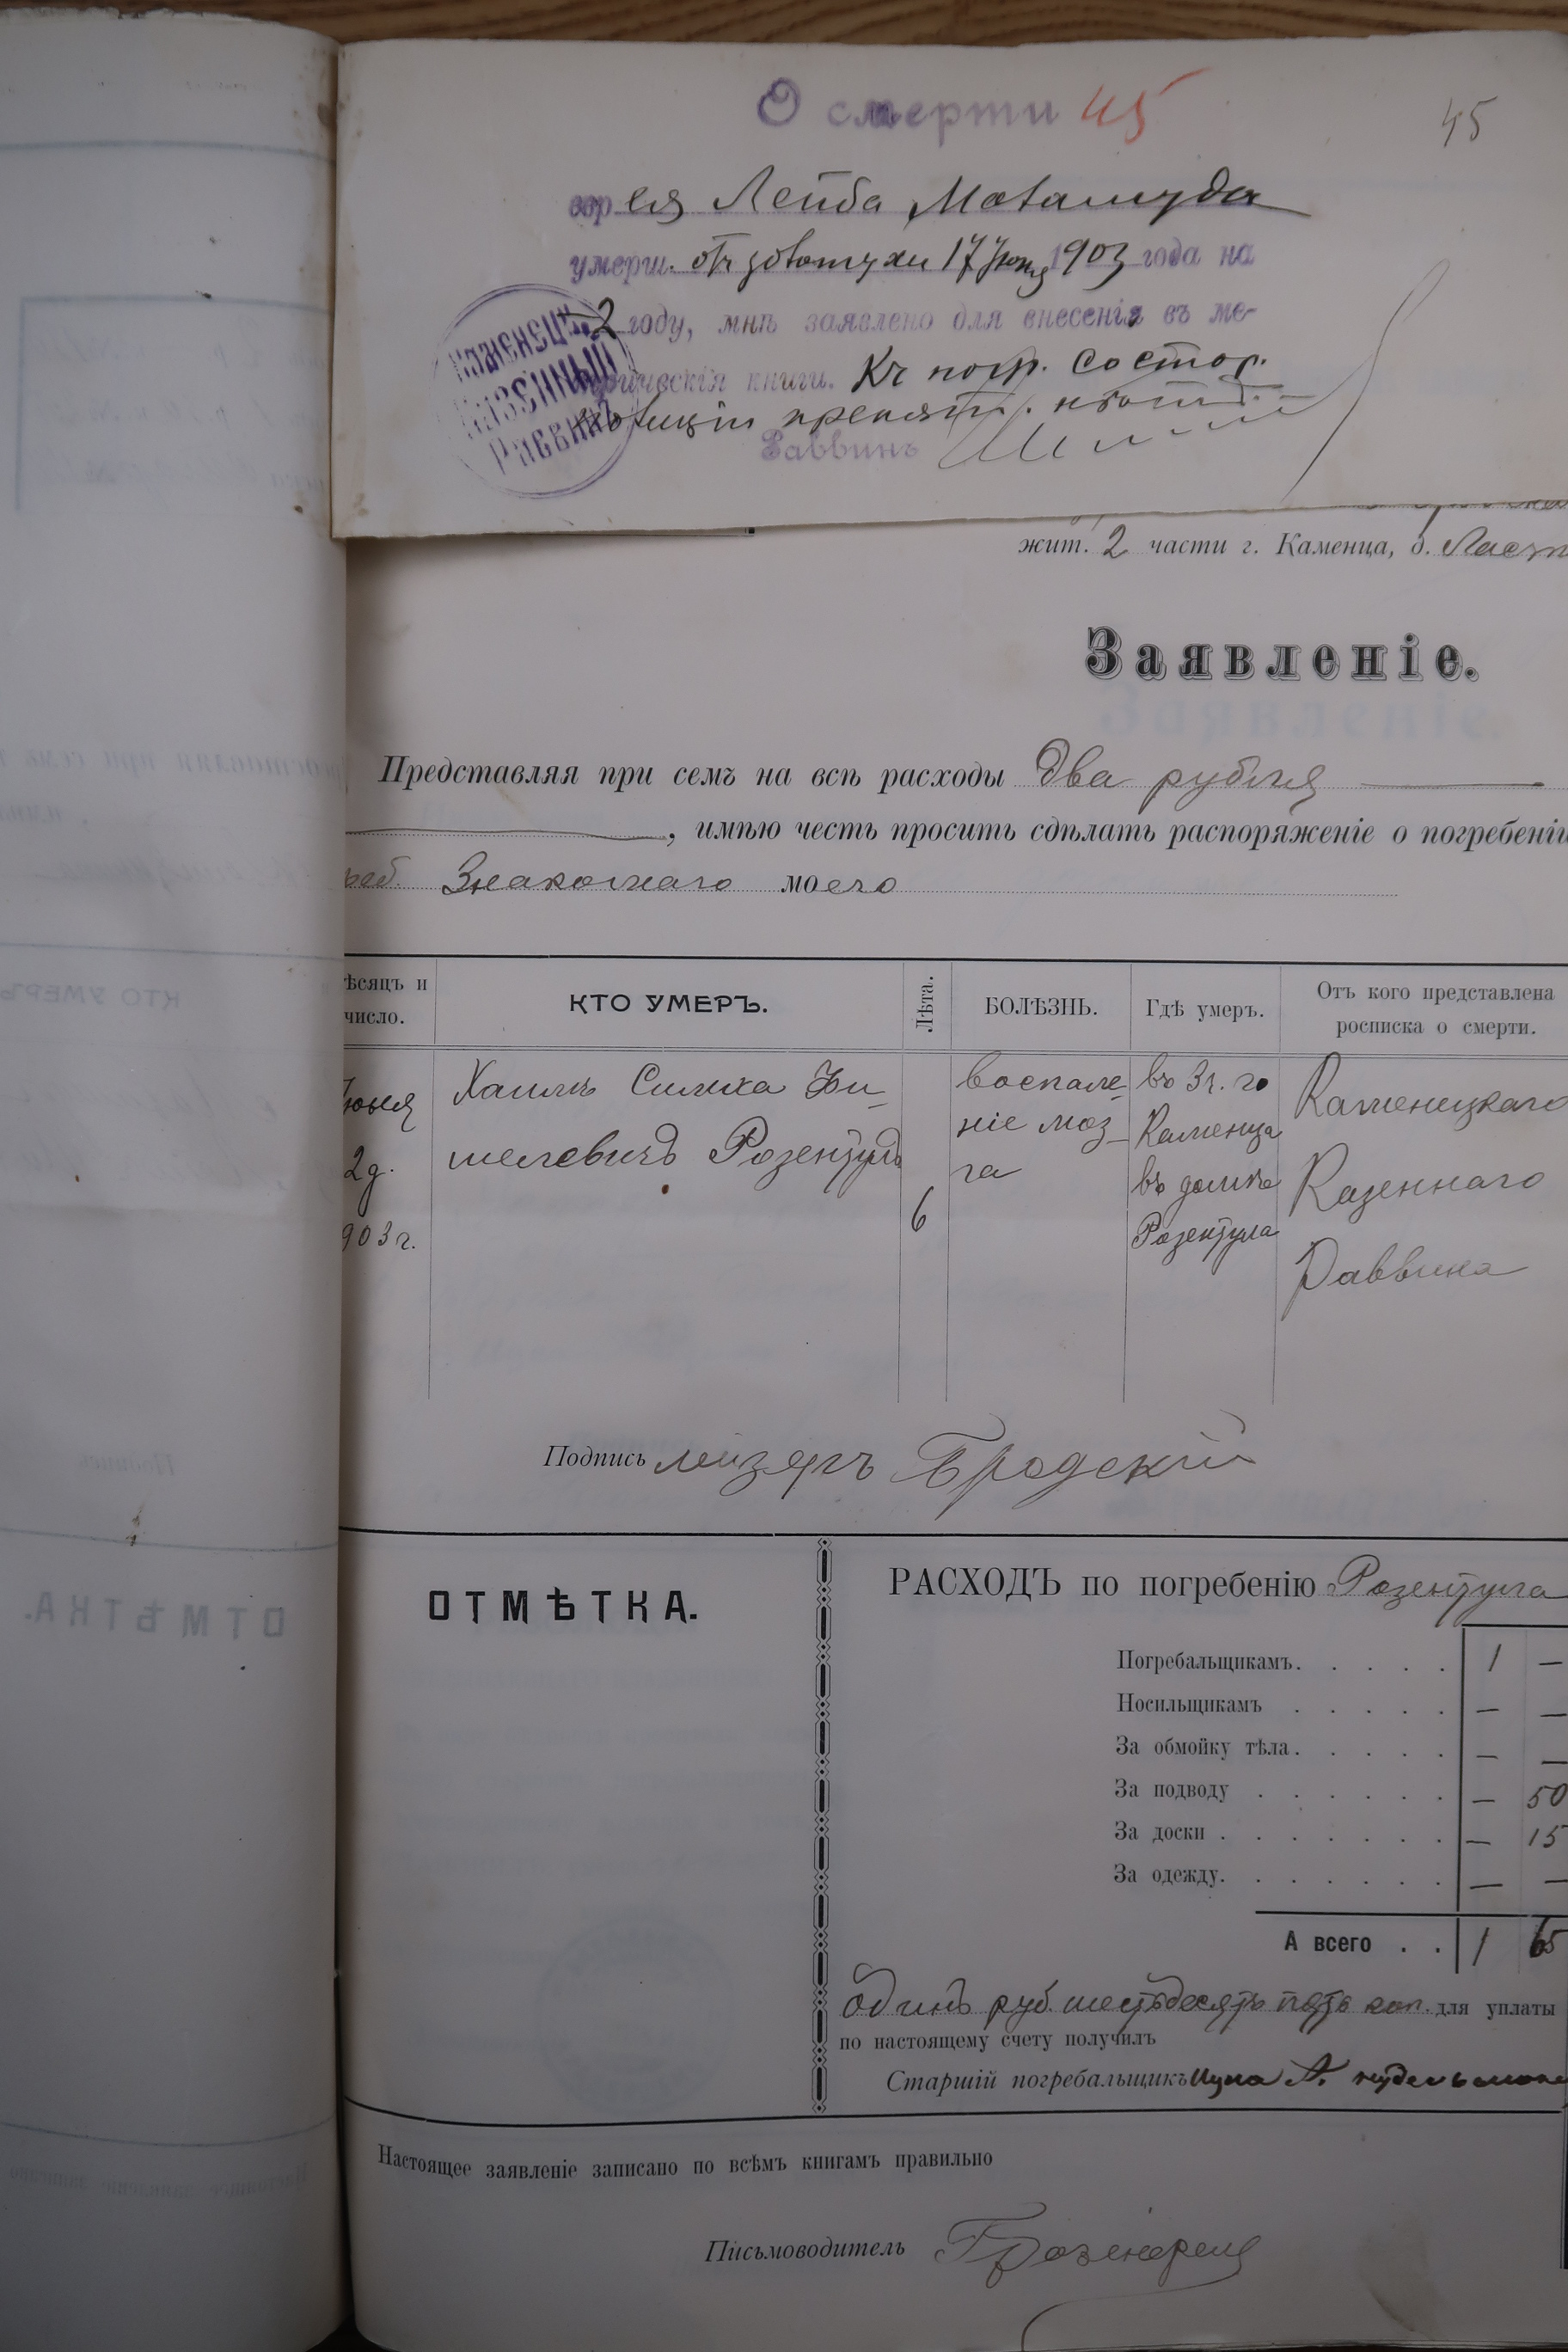 О смерти 45
45
евр ея Лейба
умерш. отъ 17 Іюня 1903 года на
2 году, мнѣ заявлено для внесенія въ ме-
трическія книги. Къ погр. со стор.
полиціи препят.
Раввинъ
Каменецк.
Казенный
Раввинъ
жит. 2 части г. Каменца, д.
Заявленіе.
Представляя при семъ на всѣ расходы два рубля
, имѣю честь просить сдѣлать распоряженіе о погребеніи
Знакомаго моего
ѣсяцъ и число.
КТО УМЕРЪ.
Лѣта.
БОЛѢЗНЬ.
Гдѣ умеръ.
Отъ кого представлена росписка о смерти.
Іюня
2д.
903 г.
Хаимъ Симха Фи-
шелевичъ Розентулъ
6
воспале-
ніе моз-
га
въ 3ч. го
Каменца
въ домѣ
Розентула
Каменецкаго
Казеннаго
Раввина
Подпись лейзеръ Бродскій
ОТМѢТКА.
РАСХОДЪ по погребенію Розентула
Погребальщикамъ. . . . . 1 —
Носильщикамъ . . . . . — —
За обмойку тѣла. . . . . — —
За подводу . . . . . . — 50
За доски . . . . . . . — 15
За одежду. . . . . . . — —
А всего . . 1 65
Одинъ руб. шестьдесятъ пять коп. для уплаты
по настоящему счету получилъ
Старшій погребальщикъ
Настоящее заявленіе записано по всѣмъ книгамъ правильно
Письмоводитель